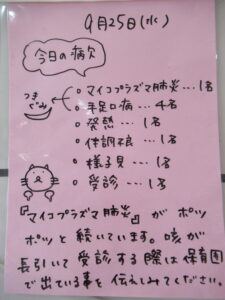 9月25日(水)
今日の病欠
つき
ぐみ
○マイコプラズマ肺炎…1名
○手足口病…4名
○発熱…1名
○体調不良…1名
○様子見…1名
○受診…1名
『マイコプラズマ肺炎』がポツ
ポツと続いています。咳が
長引いて受診する際は保育園
で出ている事を伝えてみてください。